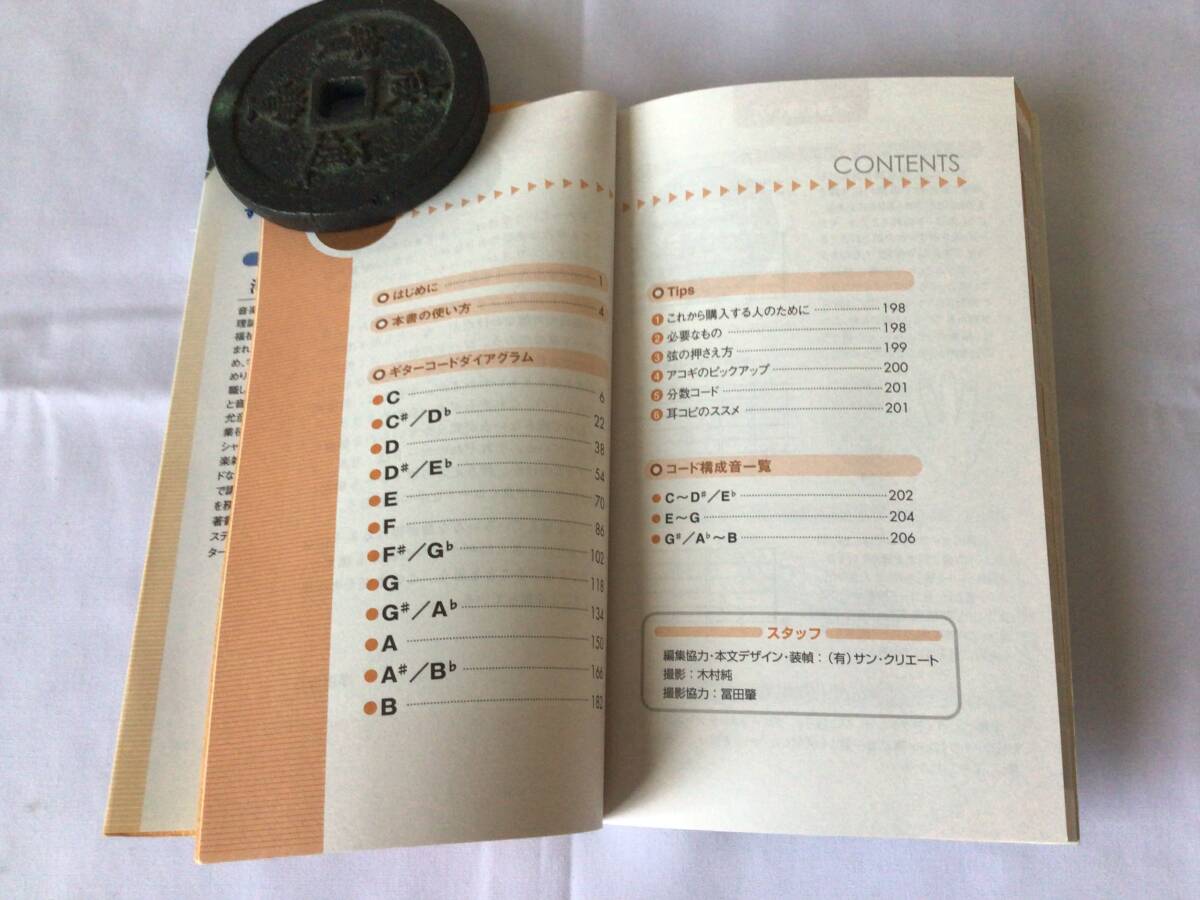 CONTENTS
はじめに 1
本書の使い方 4
ギターコードダイアグラム
C 6
C♯／D♭ 22
D 38
D♯／E♭ 54
E 70
F 86
F♯／G♭ 102
G 118
G♯／A♭ 134
A 150
A♯／B♭ 166
B 182
Tips
1 これから購入する人のために 198
2 必要なもの 198
3 弦の押さえ方 199
4 アコギのピックアップ 200
5 分数コード 201
6 耳コピのススメ 201
コード構成音一覧
C〜D♯／E♭ 202
E〜G 204
G♯／A♭〜B 206
スタッフ
編集協力・本文デザイン・装幀：（有）サン・クリエート
撮影：木村純
撮影協力：冨田肇